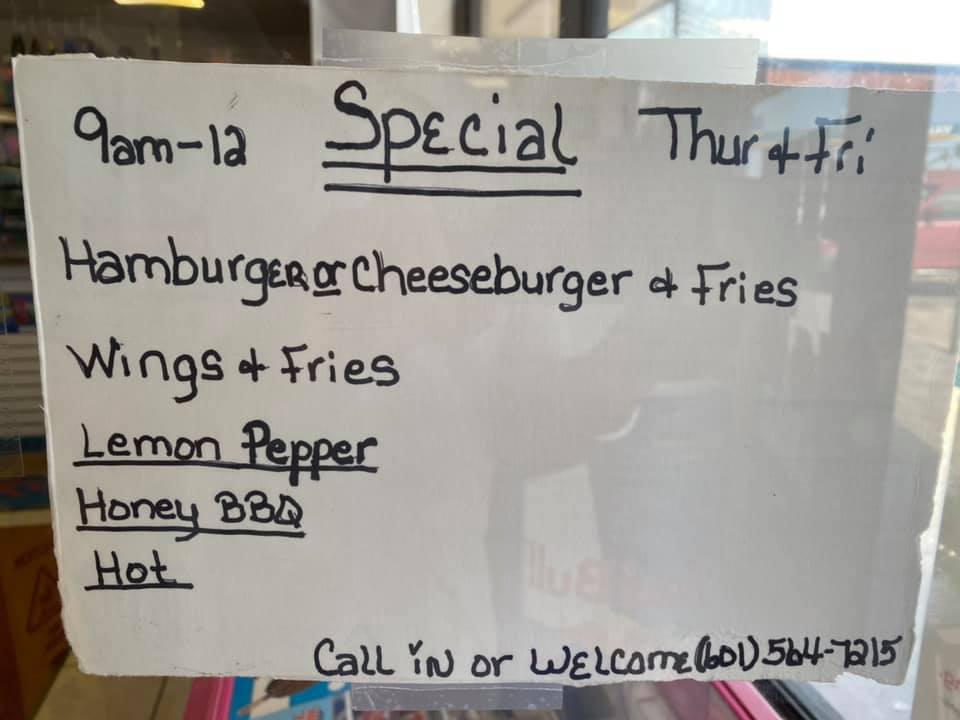 9am-12 Special Thur & Fri
Hamburger or Cheeseburger & Fries
Wings & Fries
Lemon Pepper
Honey BBQ
Hot
Bull
Call in or Welcome (601) 564-7215